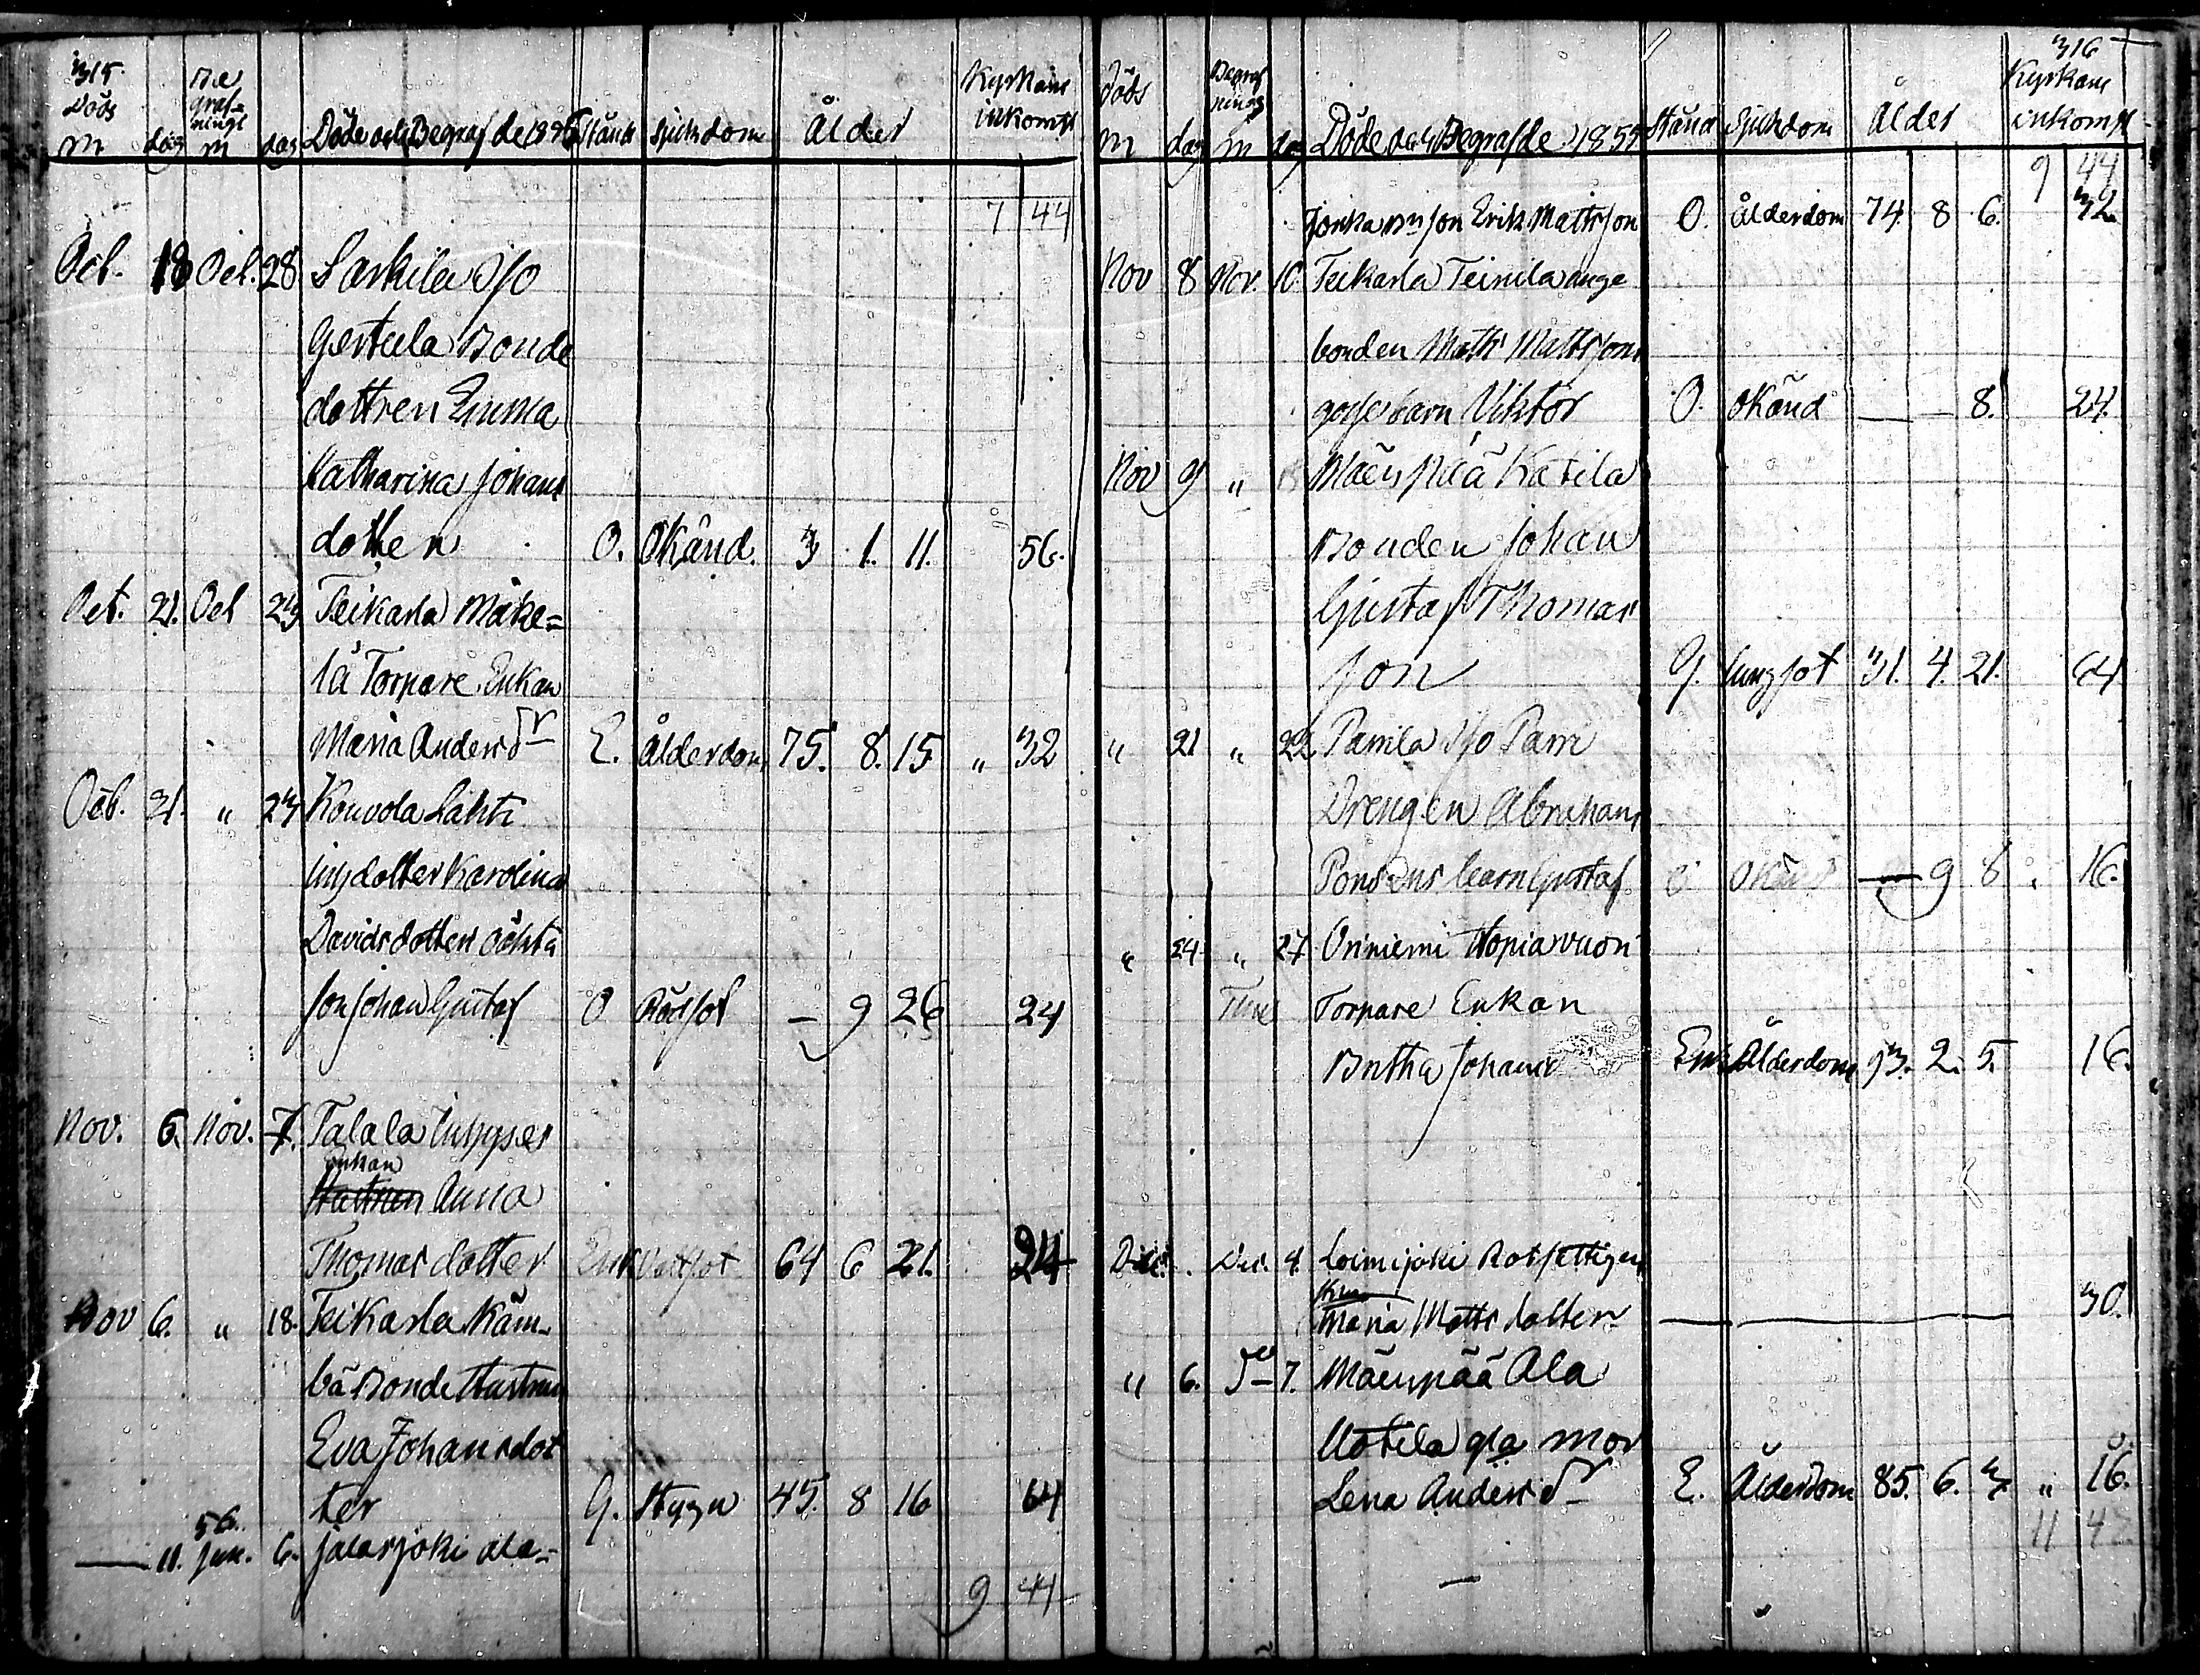 315. Be Kyrkans
Döds graf= nings inkomst
m dag m dag Döde och Begrafde 185 Stånd Sjukdom Ålder
7 44
Oct. 18 Oct. 28 Sarkila
Bonde
dottren Emma
Catharina Johans
dotter O. Okänd. 3 1. 11. 56.
Oct. 21. Oct 23 Teikarla Mäke=
lä Torpare Enkan
Maria Anders dr E. Ålderdom 75. 8. 15 " 32
Oct. 21. " 23 Kouvola Lahti
Inhysdotter Karolina
Davidsdotters oächta
son Johan Gustaf O Rödsot — 9 26 24
Nov. 6. Nov. 7. Talala Inhyses
Enkan
Hustrun Anna
Thomasdotter Enk 64 6 21. 24
Nov 6. " 18. Teikarla Käm-
bä Bonde Hustrun
Eva Johansdot
ter G. Stygn 45. 8 16 64
56.
— 11. Jun. 6. Jalasjoki Ala=
9 44
316
Döds Begraf nings Kyrkans
m dag m dag Döde och Begrafde 1855 Stånd Sjukdom Ålder inkomst
9 44
son Erik Mattsson O. Ålderdom 74. 8 6. 32
Nov 8 Nov. 10. Teikarla Teinila unge
bonden Matts Mattssons
gosse barn Viktor O. Okänd — — 8. 24.
Nov 9 " Mäenpää Katila
Bonden Johan
Gustaf Thomas
son G. Lungsot 31. 4. 21. 64
" 21 " 22 Panila
Drengen Abraham
barn Gustaf O Okänd — 9 8 . 16.
" 24 " 27 Oriniemi
Torpare Enkan
Johans Enk Ålderdom 93. 2. 5. 16.
Dec. . Dec. 4. Loimijoki Rotfattigen
Maria Mattsdotter — — 30.
" 6. de 7. Mäenpää Ala
Uotila gla mor
Lena Anders dr E. Ålderdom 85. 6. 3 " 16.
11 42
—